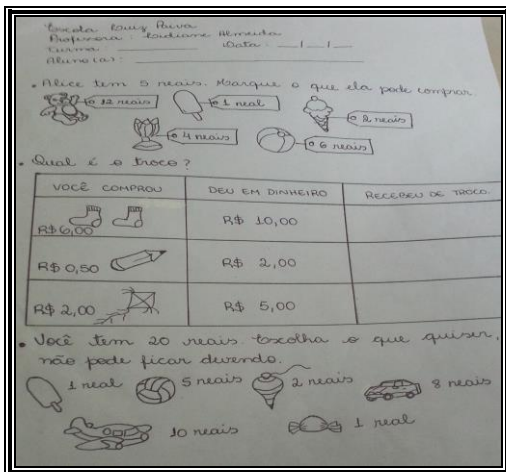 Escola Luiz Paiva
Professora: Lidiane Almeida
Turma: Data: __/__/__
Aluno(a):
• Alice tem 5 reais. Marque o que ela pode comprar
12 reais 1 real 2 reais
4 reais 6 reais
• Qual é o troco?
VOCÊ COMPROU DEU EM DINHEIRO RECEBEU DE TROCO.
R$6,00 R$ 10,00
R$ 0,50 R$ 2,00
R$ 2,00 R$ 5,00
• Você tem 20 reais. Escolha o que quiser,
não pode ficar devendo.
1 real 5 reais 2 reais 8 reais
10 reais 1 real